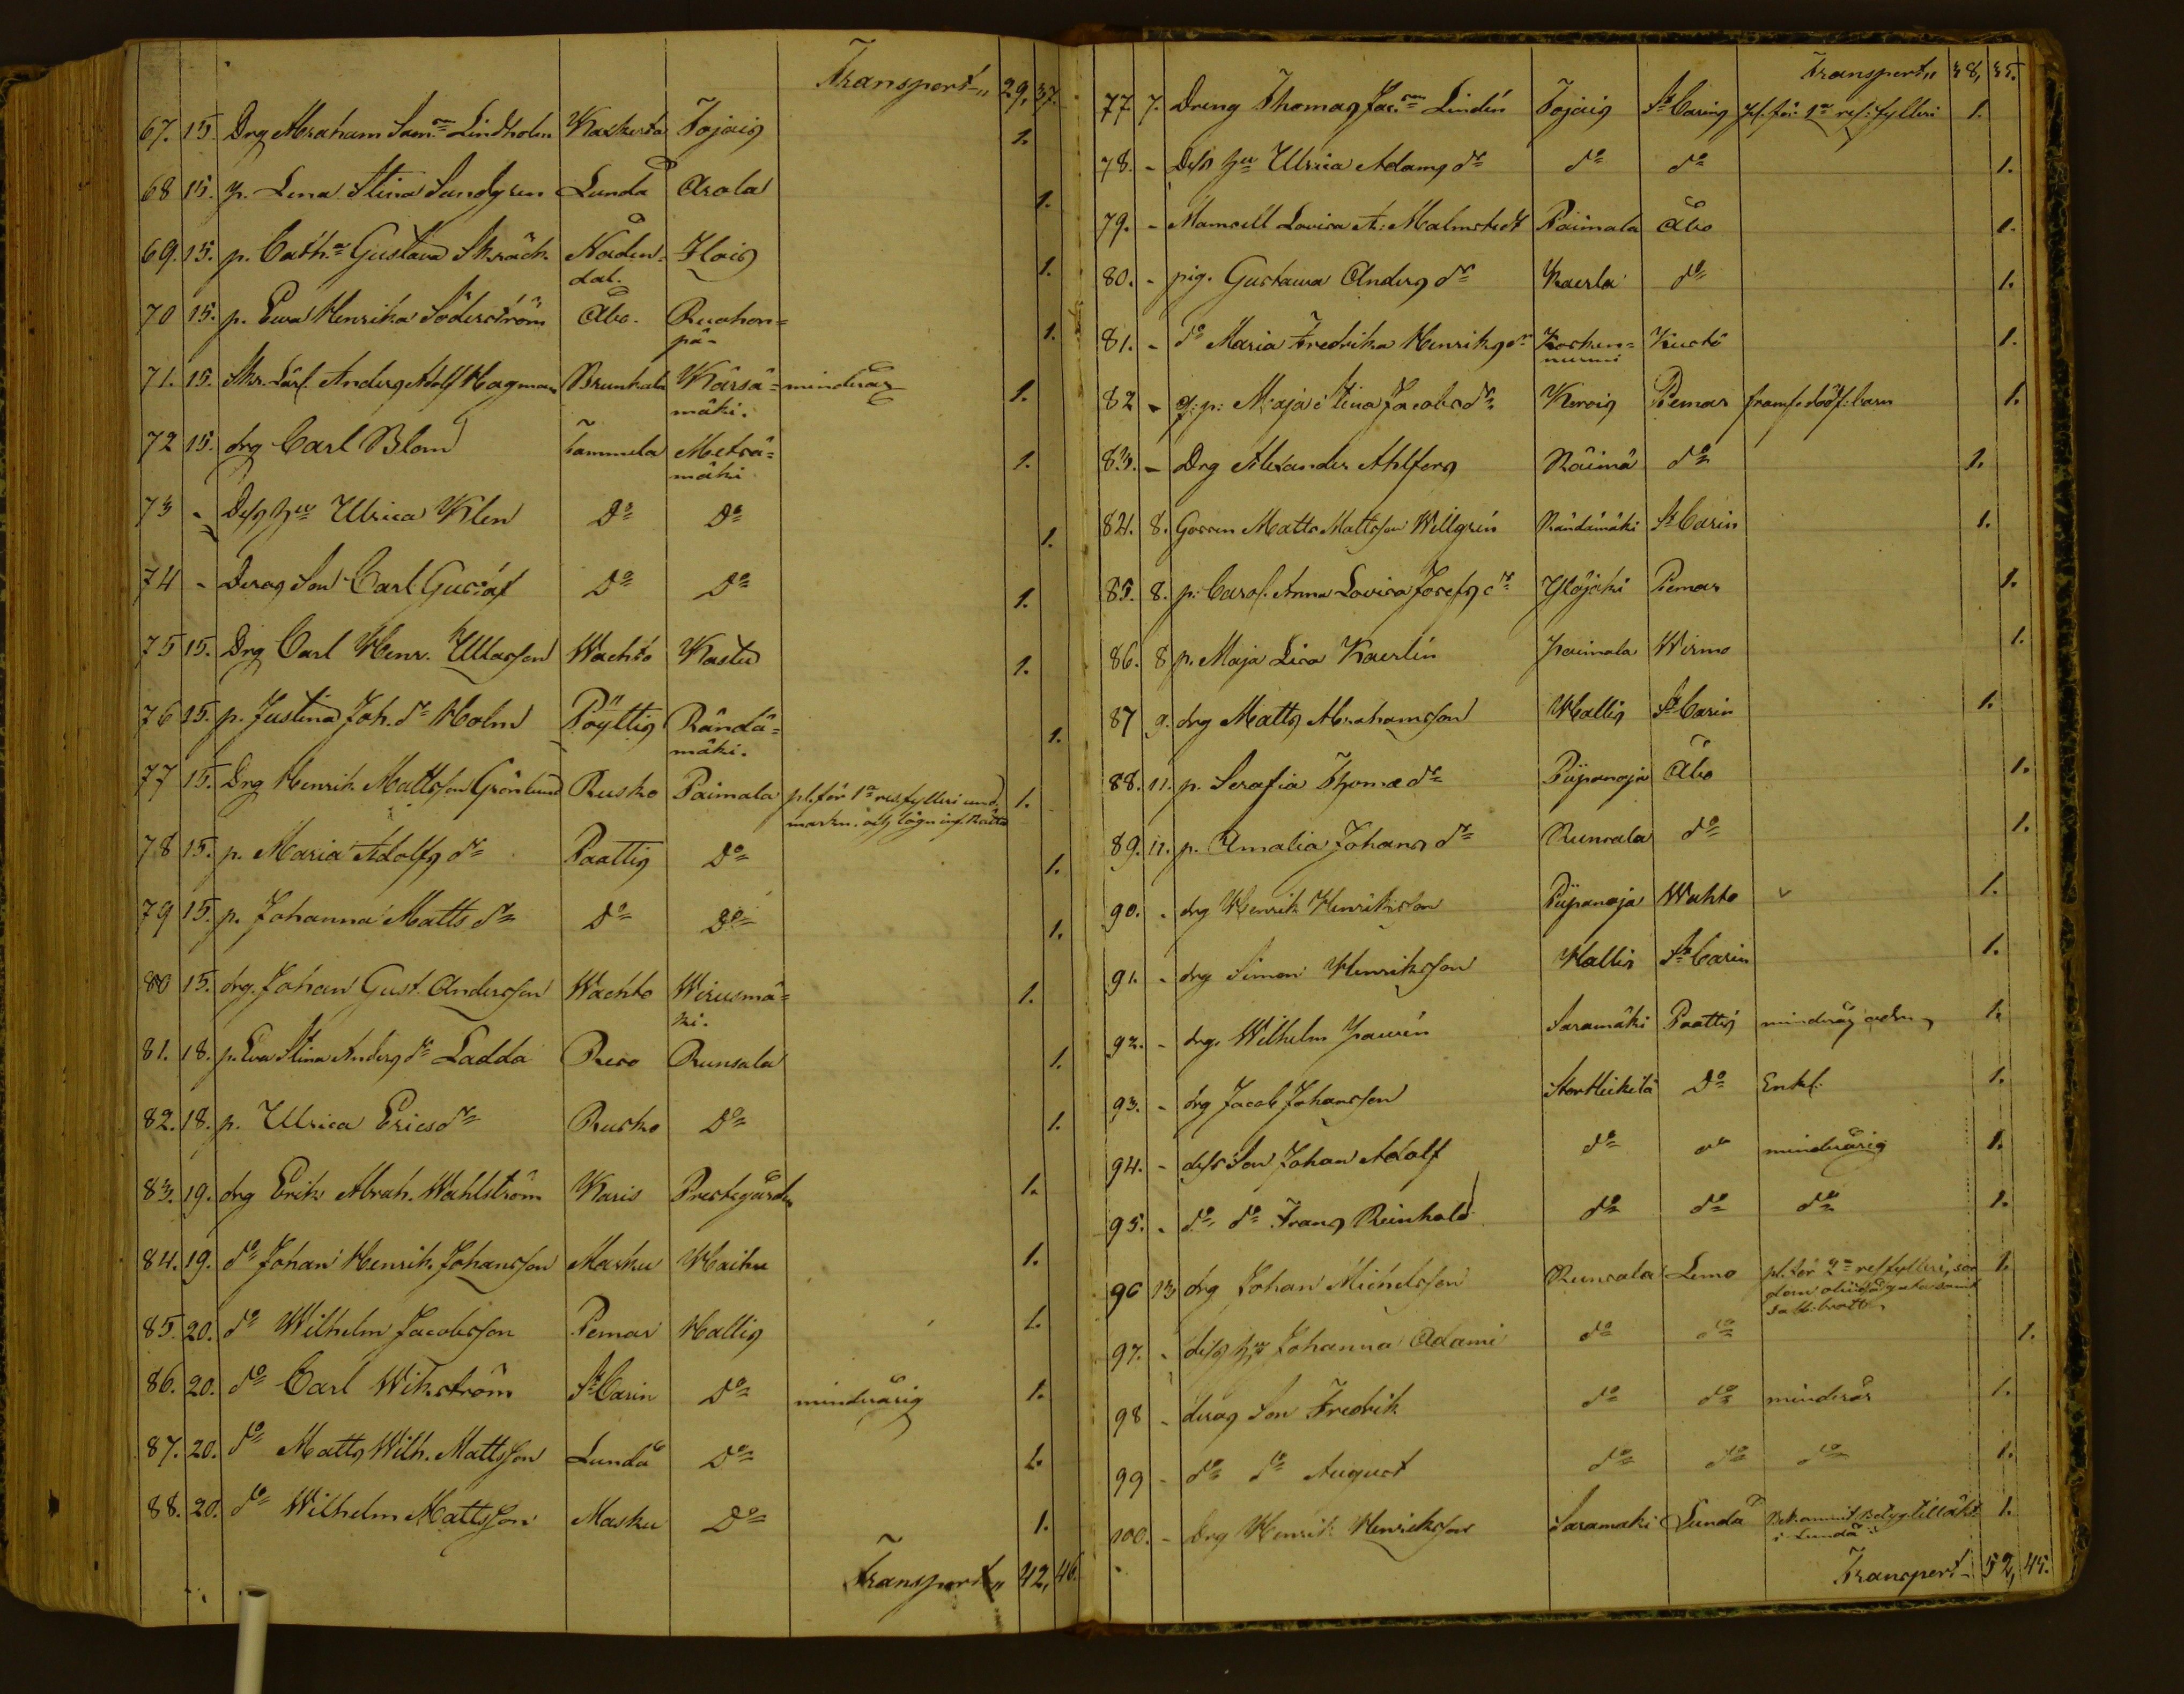 Transport„ 29, 37.
67. 15. Drg Abraham Sam.son Lindholm Kaskerta Tojais 1.
68 15. p. Lena Stina Sundgren Lundå Arola 1.
69. 15. p. Cath.a Gustava Skräck Nåden= Ilois 1.
dal.
70 15. p. Ewa Henrika Söderström Åbo. Ruohon= 1.
pä-
71. 15. Skr. Lärl. Anders Adolf Hagman Brunkala Kärsä= minderår 1.
mäki.
72 15. drg Carl Blom Tammela Metsä= 1.
mäki
73 - Dess hu Ulrica Klen Do Do 1.
74 - Deras Son Carl Gustaf Do Do 1.
75 15. Drg Carl Henr. Ullasson Wachto Kastu 1.
76 15. p. Justina Joh. dr Holm Pöyttis Rändä= 1.
mäki.
77 15. Drg Henrik Mattsson Grönlund Rusko Paimala pl. för 1a res fylleri und. 1.
markn. och
78 15. p. Maria Adolfs dr Paattis Do 1.
79 15. p. Johanna Matts dr Do Do 1.
80 15. drg. Johan Gust. Andersson Wachto Wirusmä= 1.
ki.
81. 18. p. Eva Stina Anders dr Ladda Reso Runsala 1.
82. 18. p. Ulrica Erics dr Rusko Do 1.
83. 19. drg Erik Abrah. Wahlström Karis Prestegården 1.
84. 19. do Johan Henrik Johansson Masku Haihu 1.
85. 20. do Wilhelm Jacobsson Pemar Hallis 1.
86. 20. do Carl Wikström St Carin Do minderårig 1.
87. 20. do Matts Wilh. Mattsson Lundå Do 1.
88. 20. do Wilhelm Mattsson Masku Do 1.
Transport„ 42, 46.
Transport„ 38, 35.
77 7. Dreng Thomas Jac.son Lindén Tojais St Carins pl. för 1a res: fylleri 1.
78. - Dess hu Ulrica Adams dr do do 1.
79. - Mamsell Lovisa A: Malmstedt Paimala Åbo 1.
80. - pig. Gustawa Anders dr Kaerla do 1.
81. - do Maria Fredrika Henriks dr Kosken= Kustö 1.
nurmi
82 - q: p: Maja Stina Jacobs dr Kerois Pemar framf. dödf: barn 1.
83. - Drg Alexander Ahlfors Räimä do 1.
84. 8. Gossen Matts Mattsson Willgrén Rändämäki St Carin 1.
85. 8. p. Carol. Anna Lovisa Josefs dr Ylöjoki Pemar 1.
86. 8 p. Maja Lisa Kaerlin Paimala Wirmo 1.
87 9. drg Matts Abrahamsson Hallis St Carin 1.
88. 11. p. Serafia Thomæ dr Piipanoja Åbo 1.
89. 11. p. Amalia Johans dr Runsala do 1.
90. - drg Henrik Henriksson Piipanoja Wahto 1.
91. - drg Simon Henriksson Hallis St Carin 1.
92. - drg. Wilhelm Saurén Saramäki Paattis minderårig 1.
93. - drg Jacob Johansson StorHeikilä Do Enkl. 1.
94. - dess Son Johan Adolf do do minderårig 1.
95. - do do Frans Reinhold do do do 1.
96 13 drg Johan Michelsson Runsala Lemo pl. för 2a res fylleri, 1.
97. - dess hu Johanna Adami do do 1.
98 - deras Son Fredrik do do minderår 1.
99 - do do August do do do 1.
100. - Drg Henrik Henriksson Saramäki Lundå 1.
i Lundå
Transport- 52, 45.